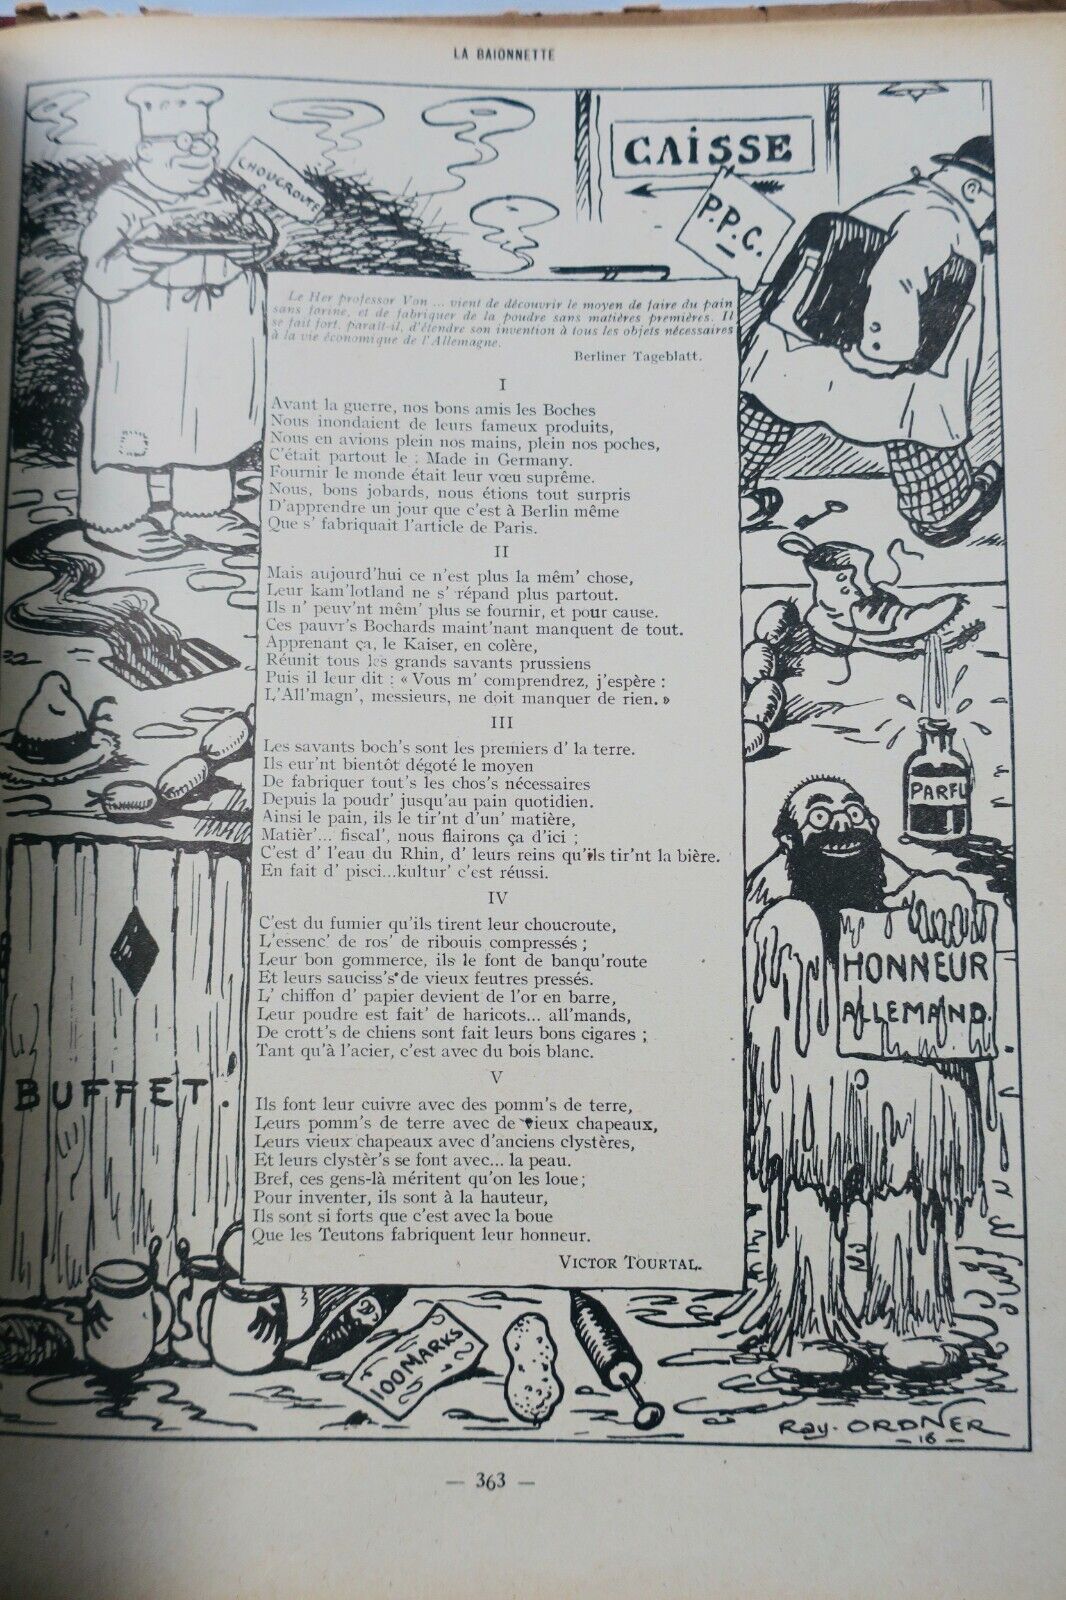 LA BAIONNETTE
CHOUCROUTE
CAISSE
P.P.C.
Le Her professor Von ... vient de découvrir le moyen de faire du pain
sans farine, et de fabriquer de la poudre sans matières premières. Il
se fait fort, paraît-il, d'étendre son invention à tous les objets nécessaires
à la vie économique de l'Allemagne.
Berliner Tageblatt.
I
Avant la guerre, nos bons amis les Boches
Nous inondaient de leurs fameux produits,
Nous en avions plein nos mains, plein nos poches,
C'était partout le : Made in Germany.
Fournir le monde était leur vœu suprême.
Nous, bons jobards, nous étions tout surpris
D'apprendre un jour que c'est à Berlin même
Que s' fabriquait l'article de Paris.
II
Mais aujourd'hui ce n'est plus la mêm' chose,
Leur kam'lotland ne s' répand plus partout.
Ils n' peuv'nt mêm' plus se fournir, et pour cause.
Ces pauvr's Bochards maint'nant manquent de tout.
Apprenant ça, le Kaiser, en colère,
Réunit tous les grands savants prussiens
Puis il leur dit : « Vous m' comprendrez, j'espère :
L'All'magn', messieurs, ne doit manquer de rien. »
III
Les savants boch's sont les premiers d' la terre.
Ils eur'nt bientôt dégoté le moyen
De fabriquer tout's les chos's nécessaires
Depuis la poudr' jusqu'au pain quotidien.
Ainsi le pain, ils le tir'nt d'un' matière,
Matièr'... fiscal', nous flairons ça d'ici ;
C'est d' l'eau du Rhin, d' leurs reins qu'ils tir'nt la bière.
En fait d' pisci...kultur' c'est réussi.
IV
C'est du fumier qu'ils tirent leur choucroute,
L'essenc' de ros' de ribouis compressés ;
Leur bon gommerce, ils le font de banqu'route
Et leurs sauciss's de vieux feutres pressés.
L' chiffon d' papier devient de l'or en barre,
Leur poudre est fait' de haricots... all'mands,
De crott's de chiens sont fait leurs bons cigares ;
Tant qu'à l'acier, c'est avec du bois blanc.
V
Ils font leur cuivre avec des pomm's de terre,
Leurs pomm's de terre avec de vieux chapeaux,
Leurs vieux chapeaux avec d'anciens clystères,
Et leurs clystèr's se font avec... la peau.
Bref, ces gens-là méritent qu'on les loue ;
Pour inventer, ils sont à la hauteur,
Ils sont si forts que c'est avec la boue
Que les Teutons fabriquent leur honneur.
VICTOR TOURTAL.
PARFU
HONNEUR
ALLEMAND.
BUFFET.
100 MARKS
Ray. ORDNER
-16-
— 363 —